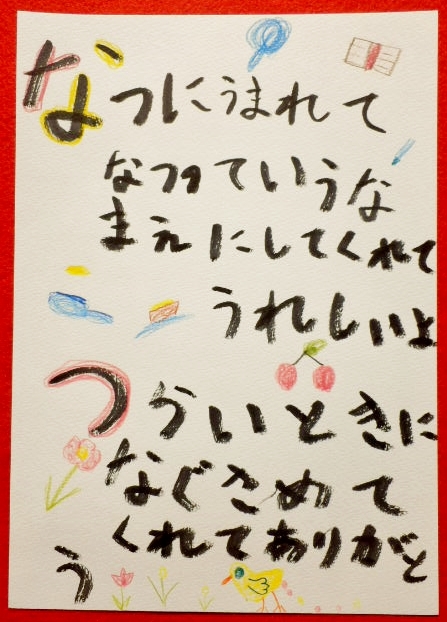 なつにうまれて
なつっていうな
まえにしてくれて
うれしいよ
つらいときに
なぐさめて
くれてありがと
う